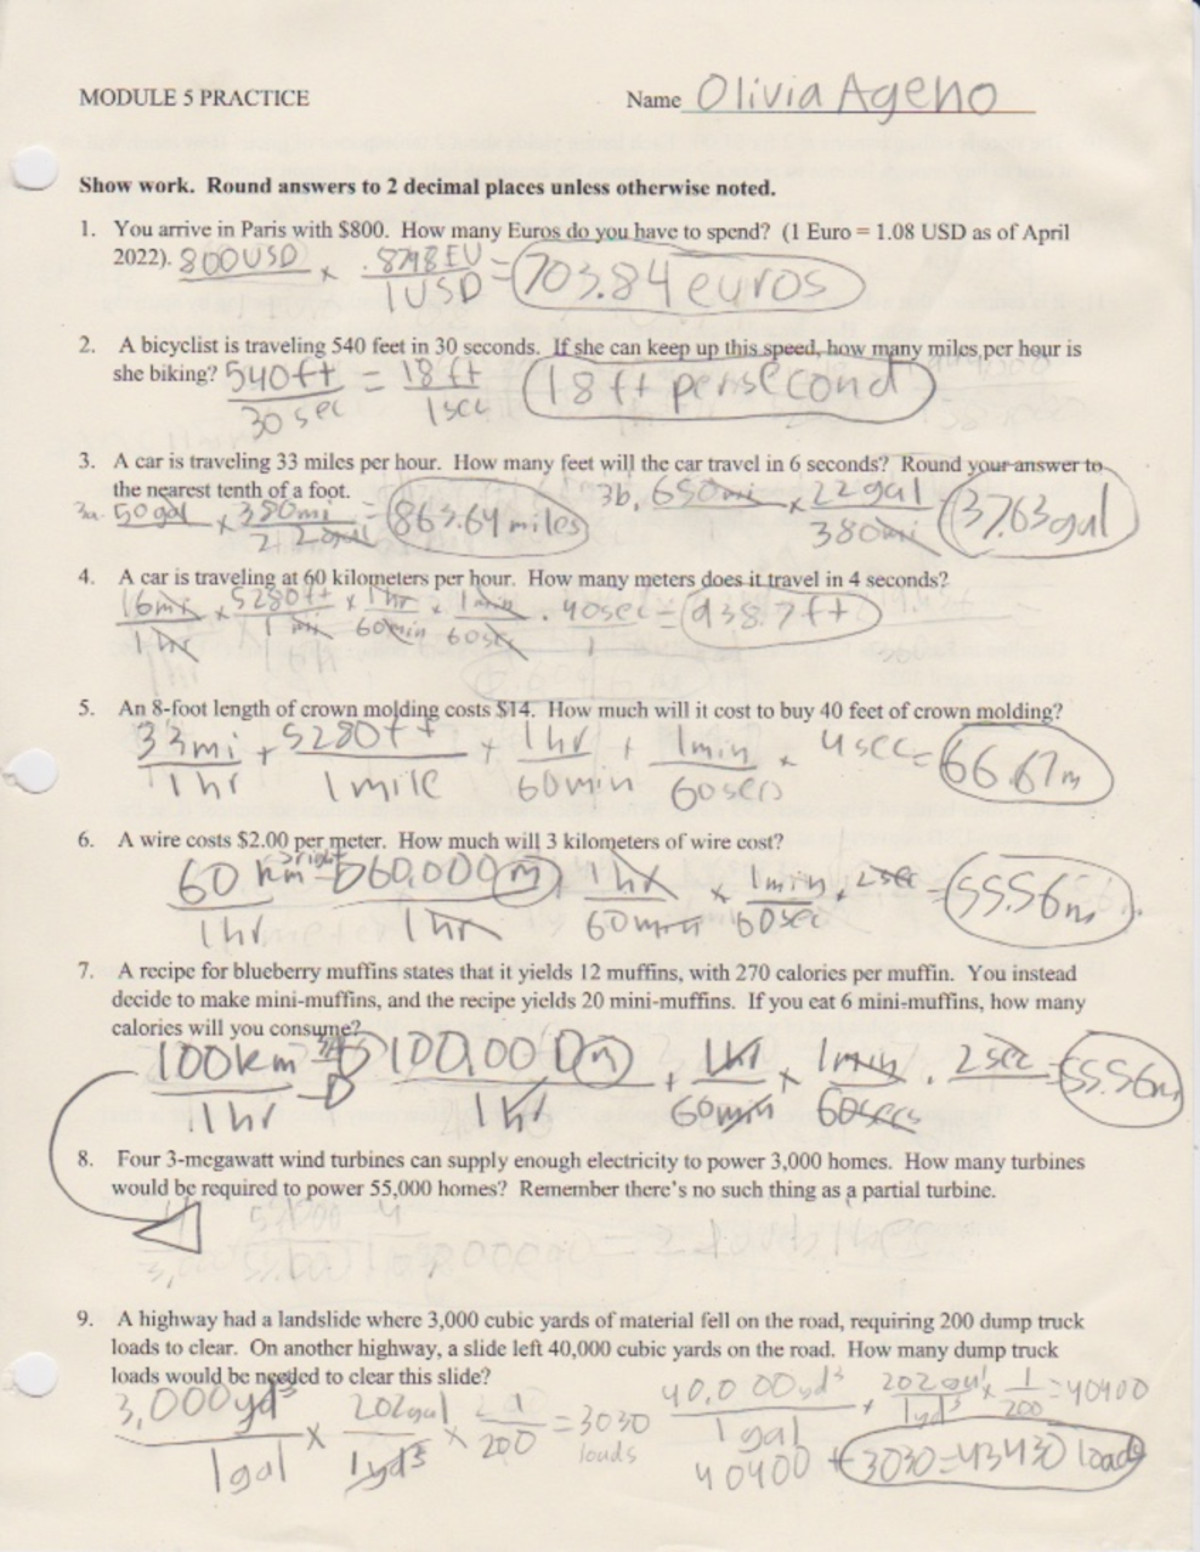 MODULE 5 PRACTICE Name Olivia Ageno
Show work. Round answers to 2 decimal places unless otherwise noted.
1. You arrive in Paris with $800. How many Euros do you have to spend? (1 Euro = 1.08 USD as of April
2022). 800USD x .8798EU / 1USD = 703.84 euros
2. A bicyclist is traveling 540 feet in 30 seconds. If she can keep up this speed, how many miles per hour is
she biking? 540ft / 30 sec = 18 ft / 1 sec 18 ft per second
3. A car is traveling 33 miles per hour. How many feet will the car travel in 6 seconds? Round your answer to
the nearest tenth of a foot. 3b. 650mi x 22gal / 380mi 37.63gal
3a. 50gal x 380mi / 22gal = 863.64 miles
4. A car is traveling at 60 kilometers per hour. How many meters does it travel in 4 seconds?
16mi / 1hr x 5280ft / 1mi x 1hr / 60min x 1min / 60sec . 40sec / 1 = 938.7ft
5. An 8-foot length of crown molding costs $14. How much will it cost to buy 40 feet of crown molding?
33mi / 1hr x 5280ft / 1mile x 1hr / 60min x 1min / 60sec x 4sec = 66.67m
6. A wire costs $2.00 per meter. How much will 3 kilometers of wire cost?
60 km / 1hr 60,000m / 1hr 1hr / 60min x 1min / 60sec . 2sec = 55.56m
7. A recipe for blueberry muffins states that it yields 12 muffins, with 270 calories per muffin. You instead
decide to make mini-muffins, and the recipe yields 20 mini-muffins. If you eat 6 mini-muffins, how many
calories will you consume?
100km / 1hr 100,000m / 1hr x 1hr / 60min x 1min / 60secs . 2sec = 55.56m
8. Four 3-megawatt wind turbines can supply enough electricity to power 3,000 homes. How many turbines
would be required to power 55,000 homes? Remember there's no such thing as a partial turbine.
9. A highway had a landslide where 3,000 cubic yards of material fell on the road, requiring 200 dump truck
loads to clear. On another highway, a slide left 40,000 cubic yards on the road. How many dump truck
loads would be needed to clear this slide?
3,000yd³ / 1gal x 202gal / 1yd³ x 1 / 200 = 3030 loads
40,000yd³ / 1gal x 202gal / 1yd³ x 1 / 200 = 40400
40400 + 3030 = 43430 loads